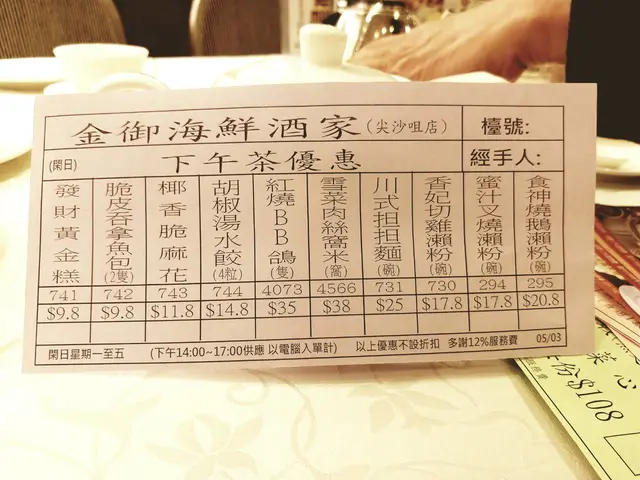 金御海鮮酒家(尖沙咀店) 檯號:
(閑日) 下午茶優惠 經手人:
發財黃金糕
脆皮吞拿魚包(2隻)
椰香脆麻花
胡椒湯水餃(4粒)
紅燒BB鴿(隻)
雪菜肉絲窩米(窩)
川式担担麵(碗)
香妃切雞瀨粉(碗)
蜜汁叉燒瀨粉(碗)
食神燒鵝瀨粉(碗)
741 742 743 744 4073 4566 731 730 294 295
$9.8 $9.8 $11.8 $14.8 $35 $38 $25 $17.8 $17.8 $20.8
閑日星期一至五 (下午14:00~17:00供應 以電腦入單計) 以上優惠不設折扣 多謝12%服務費 05/03
菜心
$108